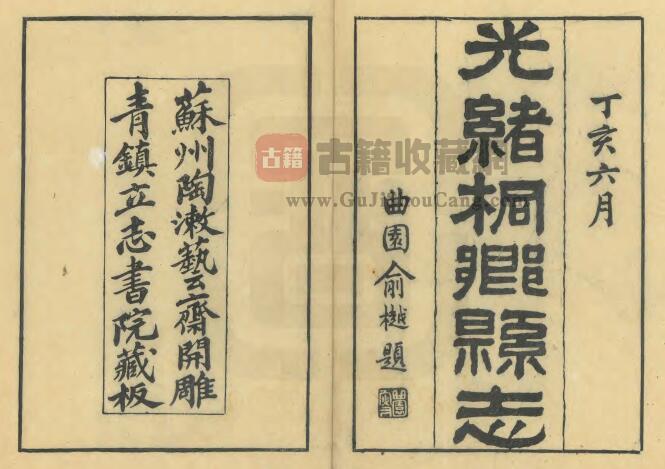 丁亥六月
光緒桐鄉縣志
曲園俞樾題
蘇州陶漱藝齋開雕
青鎮立志書院藏板
古籍
古籍收藏網
www.GuJiShouCang.com